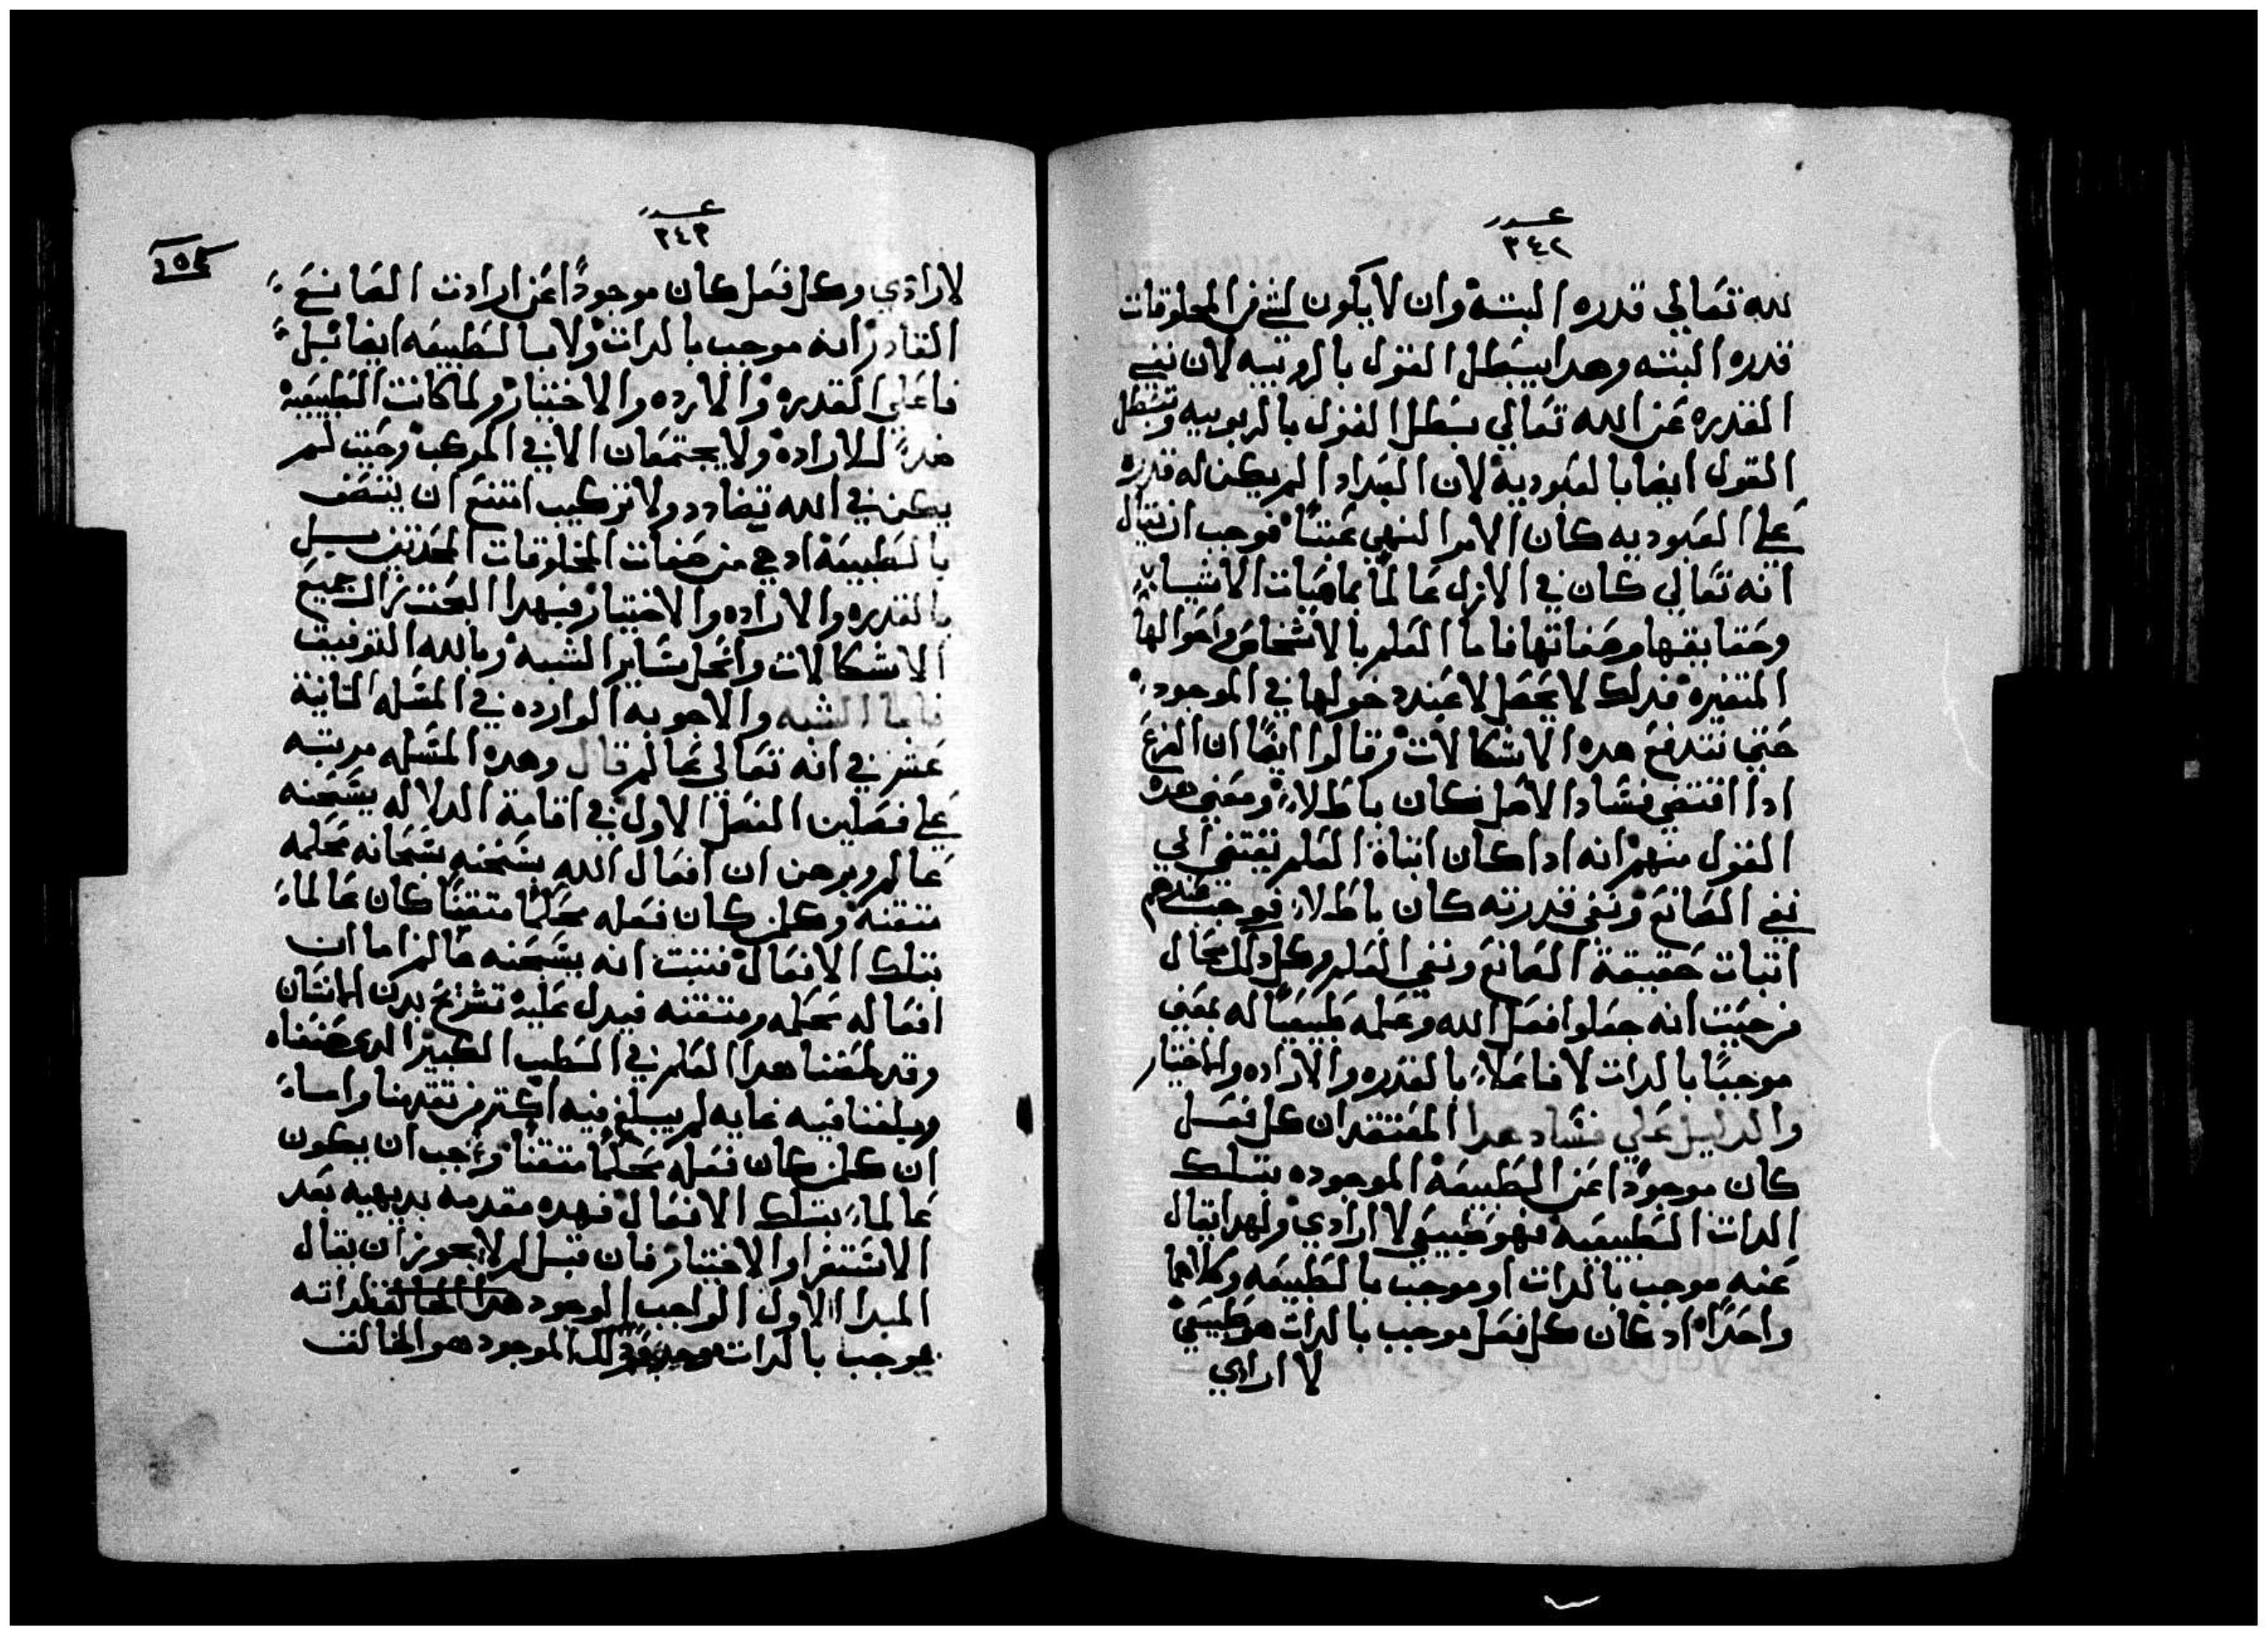 عدد
٣٤٢
لله تعالي قدره البتة وان لا يكون لشي من المخلوقات
قدره البته وهدا يبطل القول بالروبيه لان نفي
القدره عن الله تعالي يبطل القول بالربوبيه وتبطل
القول ايضا بالعبودية لان العبد ادا لم يكن له قدره
علي العبوديه كان الامر النهي عبتًا فوجب ان يقال
انه تعالي كان في الازل عالمًا بماهيات الاشيا
وحقايقها وصفاتها فاما العلم بالاشخاص واحوالها
المتغيره فدلك لا يحصل لا عند دخولها في الموجود
حتي تندفع هده الاشكالات وقالوا ايضًا ان الفرع
ادا اقتضي فساد الاصل فكان باطلاً ومعني هده
القول منهم انه ادا كان اتباة العلم يقتضي الي
نفي الصانع ونفي قدرته كان باطلاً فوجب عندهم
اتبات حقيقة الصانع ونفي العلم وكل دلك محال
من حيت انه جعلوا فعل الله وعلمه طبيعيًا له بمعني
موجبًا بالدات لا فاعلاً بالقدره والاراده والاختيار
والدليل علي فساد هدا المعتقد ان كل فعل
كان موجودًا عن الطبيعة الموجوده بتلك
الدات الطبيعية فهو طبيعي لا ارادي ولهدا يقال
عنه موجب بالدات او موجب بالطبيعه وكلاهما
واحدًا اد كان كل فعل موجب بالدات هو طبيعي
لا ارادي
عدد
٣٤٣
١٥٤
لا ارادي وكل فعل كان موجودًا عن ارادت الصانع
القادر انه موجب بالدات ولا بالطبيعه ايضا بل
فاعلي القدره والارده والاختيار ولما كانت الطبيعة
ضدً للاراده ولا يجتمعان الا في المركب وحيت لم
يكن في الله تضادد ولا تركيب امتنع ان يتصف
بالطبيعة اد هي من صفات المخلوقات المحدتين بل
بالقدره والاراده والاختيار فبهدا البحت زال جميع
الاشكالات وانحل ساير الشبه وبالله التوفيق
فاما الشبه والاجوبه الوارده في المسله التانية
عشر في انه تعالي عالم قال وهده المسله مرتبه
علي فصلين الفصل الاول في اقامة الدلاله بسبحنه
عالم وبرهن ان افعال الله بسبحنه سبحانه محكمه
متقنة وكلمن كان فعله محكمًا متقنًا كان عالماً
بتلك الافعال فتبت انه بسبحنه عالم اما ان
افعاله محكمه ومتقنه فيدل عليه تشريح بدن الانسان
وقد لخصنا هدا العلم في الطب الكبير الدي صنفناه
وبلغنا فيه غايه لم يبلغ فيه اكتر من تقدمنا واما
ان كلمن كان فعله محكمًا متقنًا وجب ان يكون
عالماً بتلك الافعال فهده مقدمه بديهيه بعد
الاستقرا والاختبار فان قيل لم لا يجوز ان يقال
المبدا الاول الواجب الوجود هدا العالم لداته
موجب بالدات دلك الموجود هو الخالق